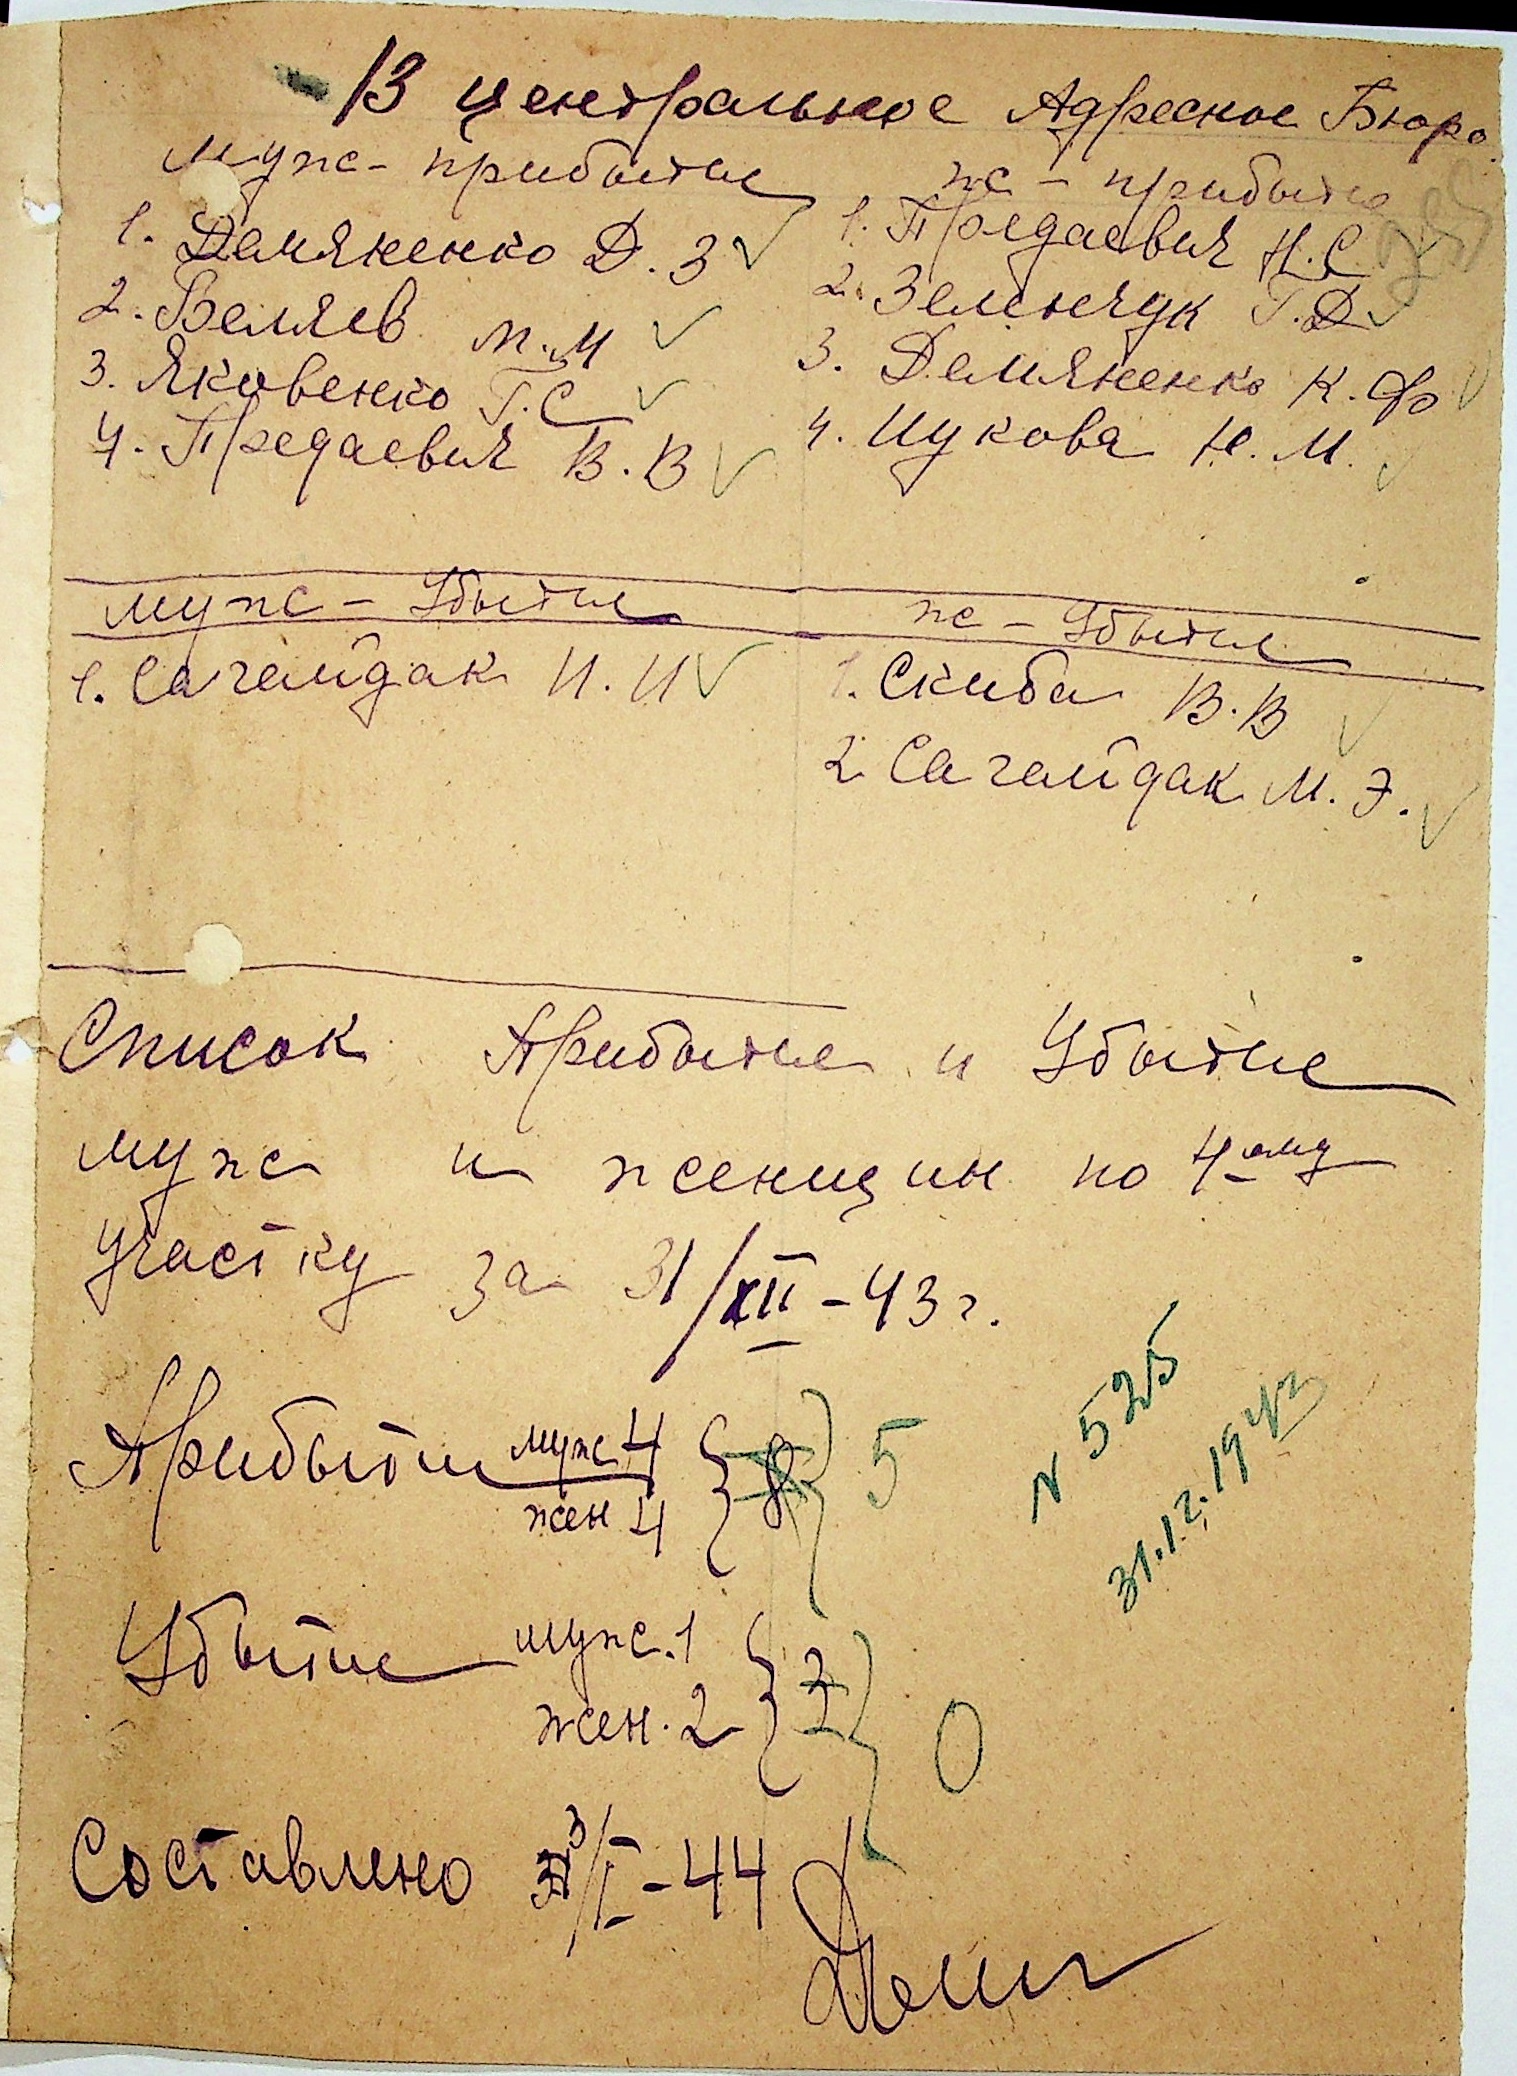 В центральное Адресное Бюро
муж - прибытие
1. Демяненко Д. З
2. Беляев М. М
3. Яковенко Г. С
4. Предаевич В. В
ж - прибытие
1. Предаевич Н. С
2. Зеленчук Г. Д
3. Демяненко К. Ф
4. Цукова Н. М.
муж - Убытие
1. Сагайдак И. И
ж - Убытие
1. Скиба В. В
2 Сагайдак М. Э.
Список Прибытие и Убытие
муж и женщин по 4-ому
участку за 31/XII - 43 г.
Прибыти муж 4
жен 4
8 5
Убытие муж. 1
жен. 2
3 0
N 525
31.12.1943
Составлено 3/I - 44